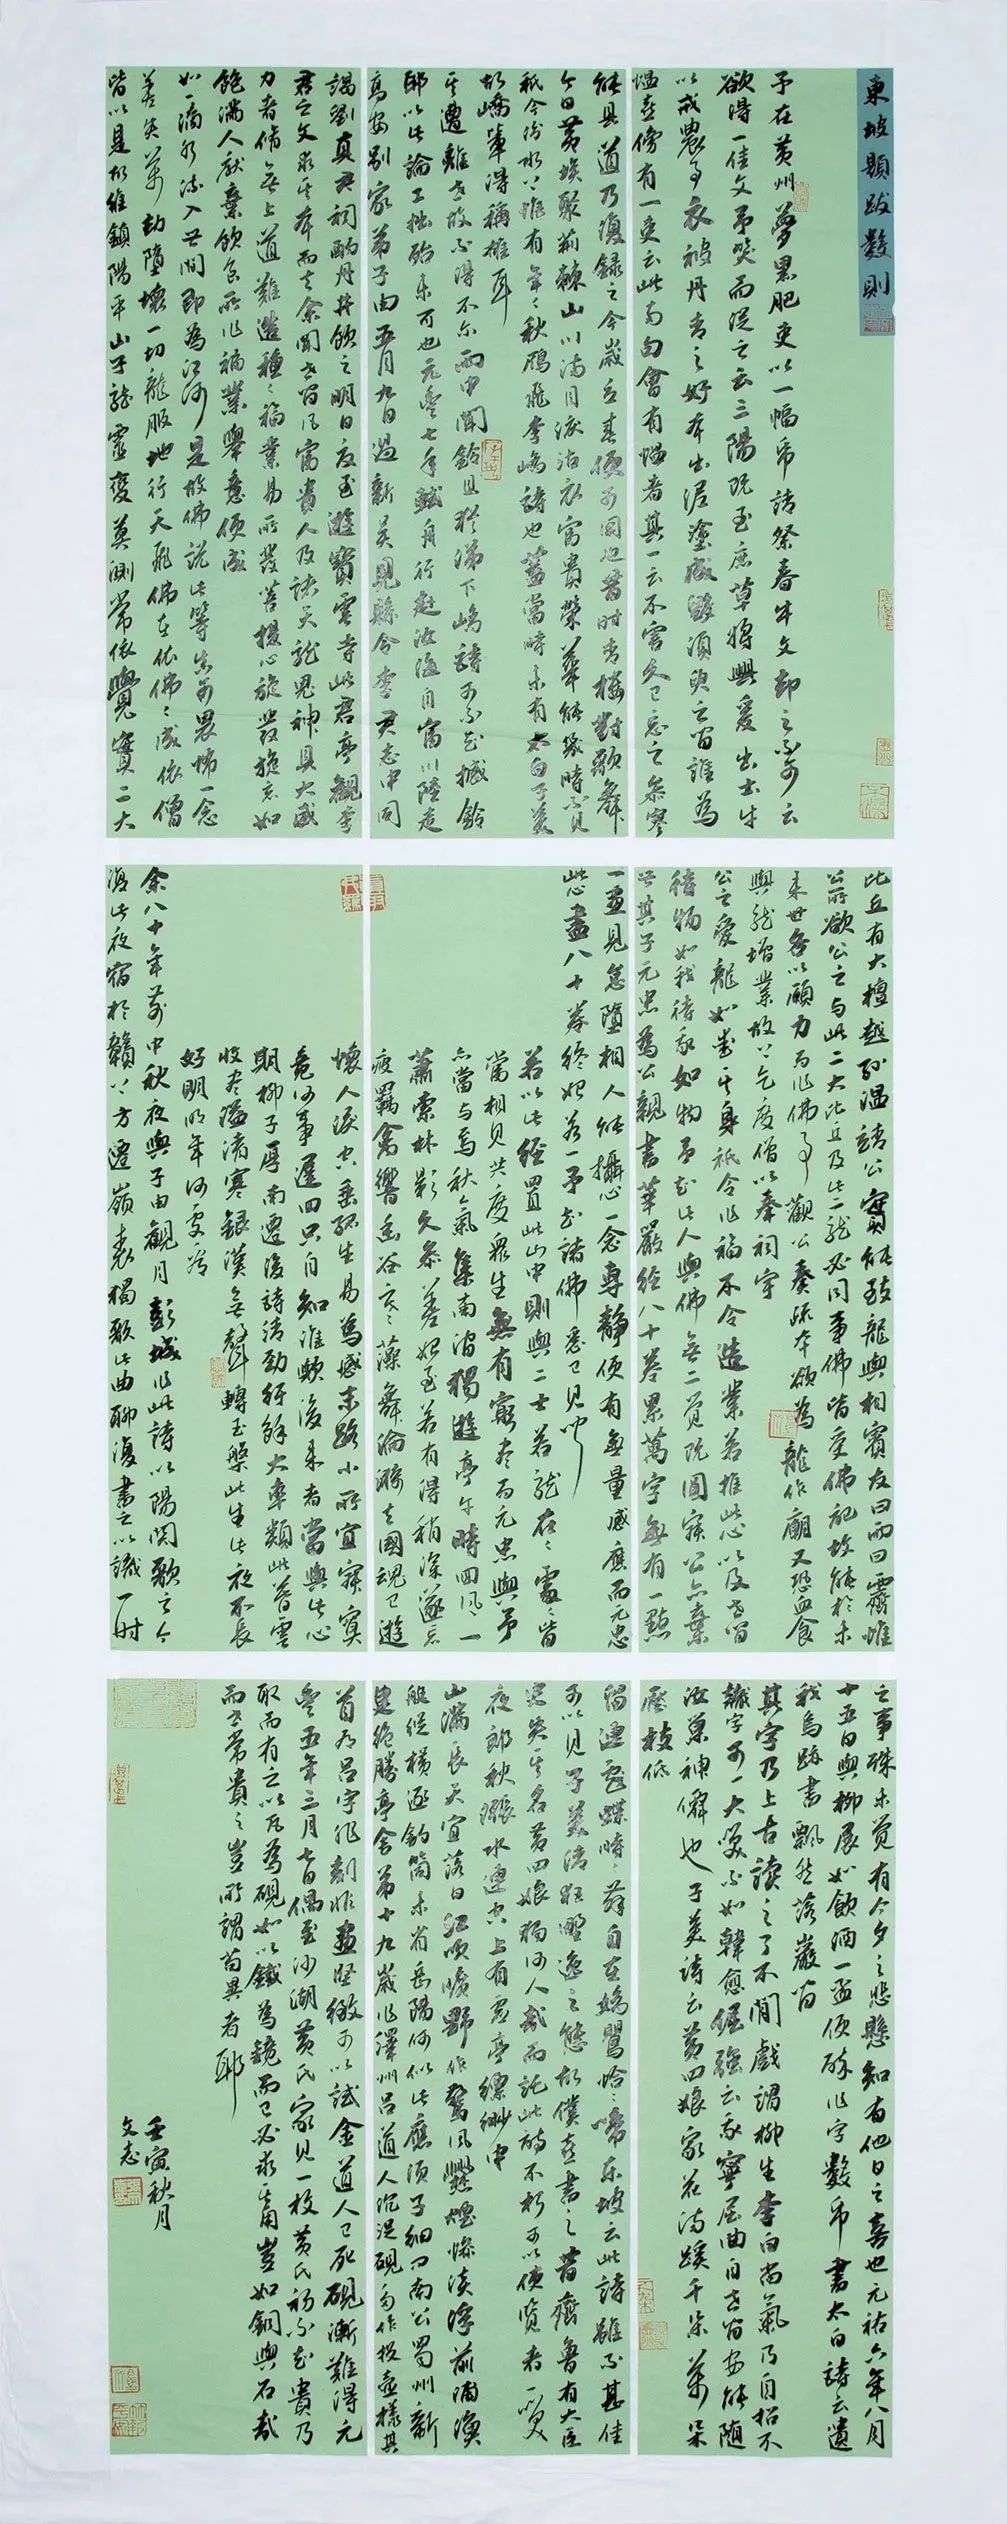 東坡題跋數則
予在黃州夢黑肥吏以一幅帋請祭春牛文却之不可云
欲得一佳文予笑而從之云三陽既至庶草將興爰出土牛
以戒農事衣被丹青之好本出泥塗成毀須臾之間誰為
慍喜傍有一吏云此兩句會有慍者其一云不害久已忘之參寥
能具道乃復錄之今歲立春便可同也昔時青樓對歌舞
今日黃埃聚荊棘山川滿目淚沾衣富貴榮華能幾時不見
秖今汾水上惟有年年秋雁飛李嶠詩也蓋當時未有太白子美
故嶠輩得稱雄耳
其遭離世故不得不尔雨中聞鈴且猶涕下嶠詩可不如撼鈴
耶以此論工拙殆未可也元豐七年軾舟行赴汝海自富川陸走
高安別家弟子由五月九日過新吳見縣令李君志中同
謁劉真君祠酌丹井飲之明日度至遊寶雲寺此君亭觀李
君之文求其本而去余聞世間凡富貴人及諸天龍鬼神具大威
力者脩無上道難造種種福業易所發菩提心旋發旋忘如
飽滿人厭棄飲食所作福業舉意便成
如一滴水流入世間即為江河是故佛說此等真可畏怖一念
差失萬劫墮壞一切龍服地行天飛佛在依佛佛成依僧
皆以是故維鎮陽平山子龍靈變莫測常依覺實二大
比丘有大檀越孫溫靖公實能致龍與相賓友曰雨曰霽惟
公所欲公之与此二大比丘及此二龍必同事佛皆受佛記故能於未
來世各以願力而作佛事觀公奏疏本欲為龍作廟又恐血食
與龍增業故上乞度僧以奉祠宇
公之愛龍如愛其身祇令作福不令造業若推此心以及世間
待物如我待我如物予知此人與佛無二覺既圓寂公亦棄
世其子元忠為公親書華嚴經八十卷累萬字無有一點
一畫見怠墮相人能攝心一念專靜便有無量感應而元忠
此心盡八十卷終始若一予知諸佛悉已見聞
若以此經置此山中則與二士若龍在在處處皆
當相見共度眾生無有窮盡而元忠與予
亦當与焉秋氣集南澗獨遊亭午時回風一
蕭索林影久參差始至若有得稍深遂忘
疲羈禽響幽谷寒藻舞淪漪去國魂已遊
懷人淚空垂孤生易為感失路少所宜寂寞
竟何事遲回只自知誰歟後來者當與此心
期柳子厚南遷後詩清勁紆餘大率類此暮雲
收盡溢清寒銀漢無聲轉玉盤此生此夜不長
好明明年何處看
余八十年前中秋夜與子由觀月彭城作此詩以陽關歌之今
復此夜宿於贛上方遷嶺表獨歌此曲聊復書之以識一時
之事殊未覺有今夕之悲懸知有他日之喜也元祐六年八月
十五日與柳展如飲酒一盃便醉作字數帋書太白詩云遺
我鳥跡書飄然落巖間
其字乃上古讀之了不閒戲謂柳生李白尚氣乃自招不
識字可一大笑不如韓愈倔強云我寧屈曲自世間安能隨
汝巢神僊也子美詩云黃四娘家花滿蹊千朵萬朵
壓枝低
留連戲蝶時時舞自在嬌鶯恰恰啼東坡云此詩雖不甚佳
可以見子美清狂野逸之態故僕喜書之昔齊魯有大臣
史失其名黃四娘獨何人哉而託此詩不朽可以使覽者一笑
夜郎秋漲水連空上有虛亭縹緲中
山滿長天宜落日江吹曠野作驚風爨煙慘淡浮前浦漁
艇縱橫逐釣筒未省岳陽何似此應須子細問南公蜀州新
建絕勝亭舍弟十九歲作澤州呂道人沉泥硯多作投壺樣其
首有呂字非刻非畫堅緻可以試金道人已死硯漸難得元
豐五年三月七日偶至沙湖黃氏家見一枚黃氏初不知貴乃
取而有之以瓦為硯如以鐵為鏡而已必求其用豈如銅與石哉
而世常貴之豈所謂苟異者耶
壬寅秋月
文志